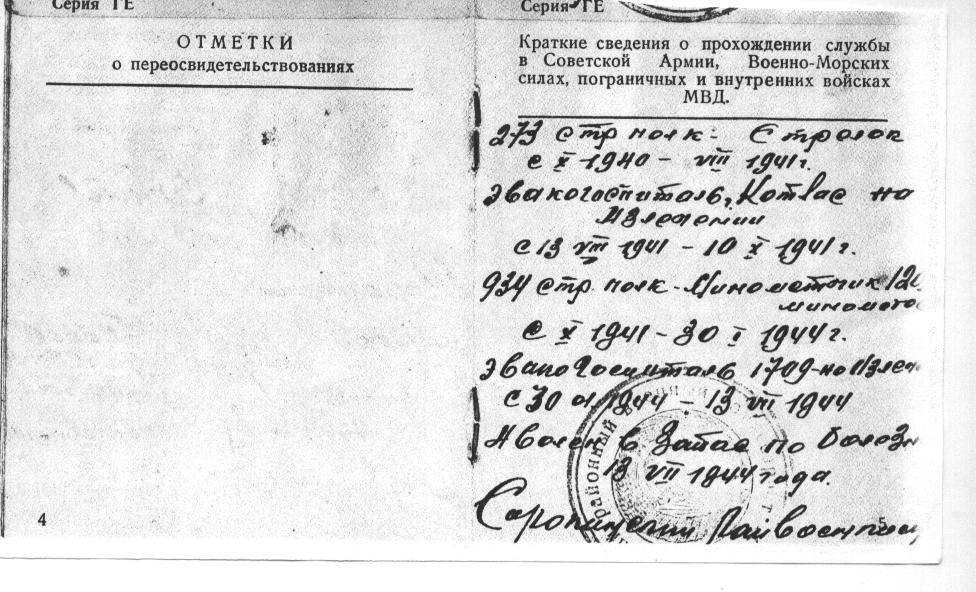 Серия ГЕ
ОТМЕТКИ
о переосвидетельствованиях
4
Серия ГЕ
Краткие сведения о прохождении службы
в Советской Армии, Военно-Морских
силах, пограничных и внутренних войсках
МВД.
273 стр полк. Стрелок
с X 1940 - VIII 1941г.
Эвакогоспиталь, Котлас на
излечении
с 13 VIII 1941 - 10 X 1941г.
934 стр. полк - Минометчик 120
с X 1941 - 30 I 1944г.
Эвакогоспиталь 1709 - на
с 30 01 1944 - 13 VII 1944
в запас по
13 VII 1944 года.
5
районный